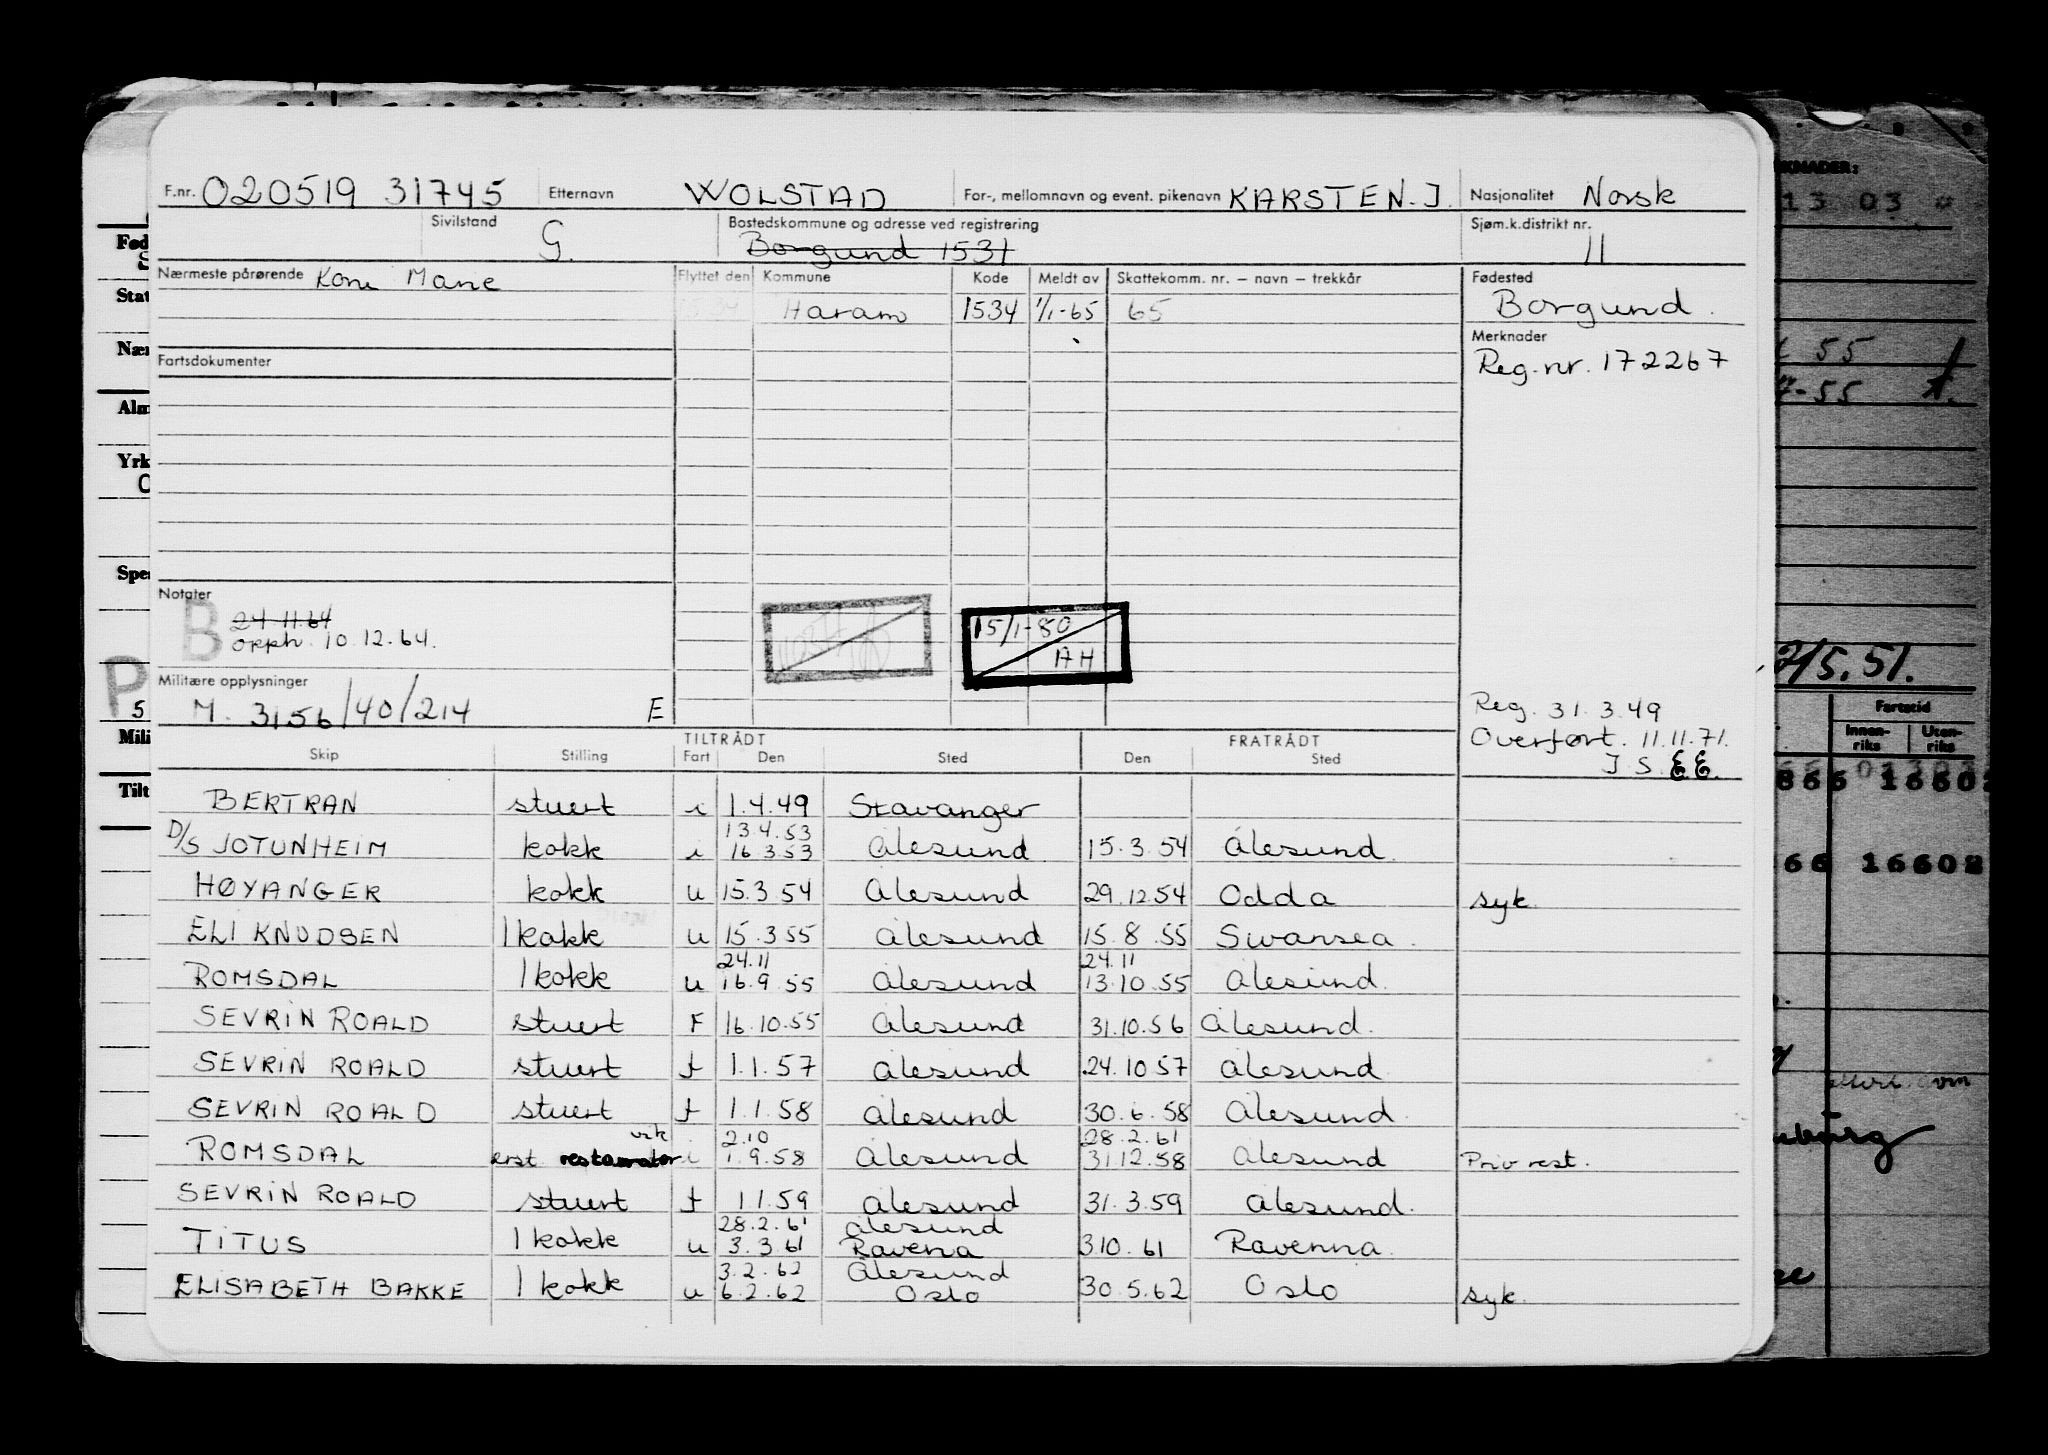 F.nr. 020519 31745 Etternavn WOLSTAD For-, mellomnavn og event. pikenavn KARSTEN. J. Nasjonalitet Norsk
Sivilstand G. Bostedskommune og adresse ved registrering Borgund 1531 Sjøm.k.distrikt nr. 11
Nærmeste pårørende Kone Marie Flyttet den Kommune Kode Meldt av Skattekomm. nr. – navn – trekkår Fødested
Haram 1534 1/1-65 65 Borgund.
Merknader
Fartsdokumenter Reg.nr. 172267
Notater
B 24-11.64
opph. 10.12.64.
15/1-80
AH
Militære opplysninger
M. 3156/40/214 E
Reg. 31.3.49
Overført. 11.11.71.
J S. E E.
TILTRÅDT FRATRÅDT
Skip Stilling Fart Den Sted Den Sted
BERTRAN stuert i 1.4.49 Stavanger
13.4.53
D/S JOTUNHEIM kokk i 16.3.53 Ålesund 15.3.54 Ålesund
HØYANGER kokk u 15.3.54 Ålesund 29.12.54 Odda syk.
ELI KNUDSEN 1 kokk u 15.3.55 Ålesund 15.8.55 Swansea.
24.11 24.11
ROMSDAL 1 kokk u 16.9.55 Ålesund 13.10.55 Ålesund.
SEVRIN ROALD stuert F 16.10.55 Ålesund 31.10.56 Ålesund.
SEVRIN ROALD stuert f 1.1.57 Ålesund 24.10.57 Ålesund
SEVRIN ROALD stuert f 1.1.58 Ålesund 30.6.58 Ålesund.
2.10 28.2.61
ROMSDAL restaurator i 1.9.58 Ålesund 31.12.58 Ålesund Priv rest.
SEVRIN ROALD stuert f 1.1.59 Ålesund 31.3.59 Ålesund.
28.2.61 Ålesund
TITUS 1 kokk u 3.3.61 Ravena 3.10.61 Ravenna.
3.2.62 Ålesund
ELISABETH BAKKE 1 kokk u 6.2.62 Oslo 30.5.62 Oslo syk.
Fød
Stat
Nær
Alm
Yrk
Spe
P
5
Mili
Tilt
KNADER:
13 03
55
-55
2/5.51.
Fartstid
Innen-
riks
Uten-
riks
66 16602